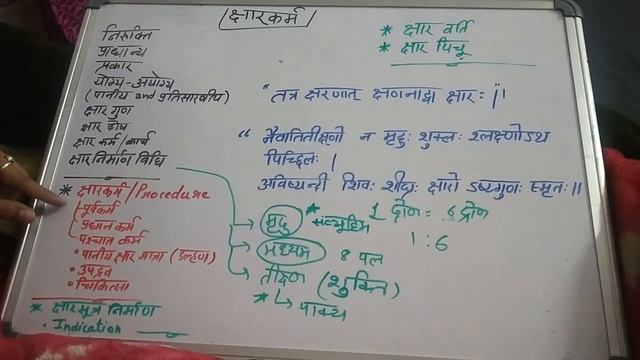 क्षारकर्म
* क्षार वर्ति
* क्षार पिचू
निरूक्ति
प्राधान्य
प्रकार
योग्य-अयोग्य
(पानीय and प्रतिसारणीय)
क्षार गुण
क्षार दोष
क्षार कर्म/कार्य
क्षार निर्माण विधि
"तत्र क्षरणात् क्षणनाद्वा क्षारः ||
"नैवातितीक्ष्णो न मृदुः शुक्लः श्लक्ष्णोऽथ
पिच्छिलः |
अविष्यन्दी शिवः शीघ्रः क्षारो ऽष्टगुणः स्मृतः ||
* क्षारकर्म/Procedure
पूर्वकर्म
प्रधान कर्म
पश्चात कर्म
• पानीय क्षार मात्रा (डल्हण)
• उपद्रव
• चिकित्सा
* क्षारसूत्र निर्माण
• Indication
मृदु *
1 द्रोण = 6 द्रोण
1:6
मध्यम 8 पल
तीक्ष्ण (शुक्ति)
* पाक्य